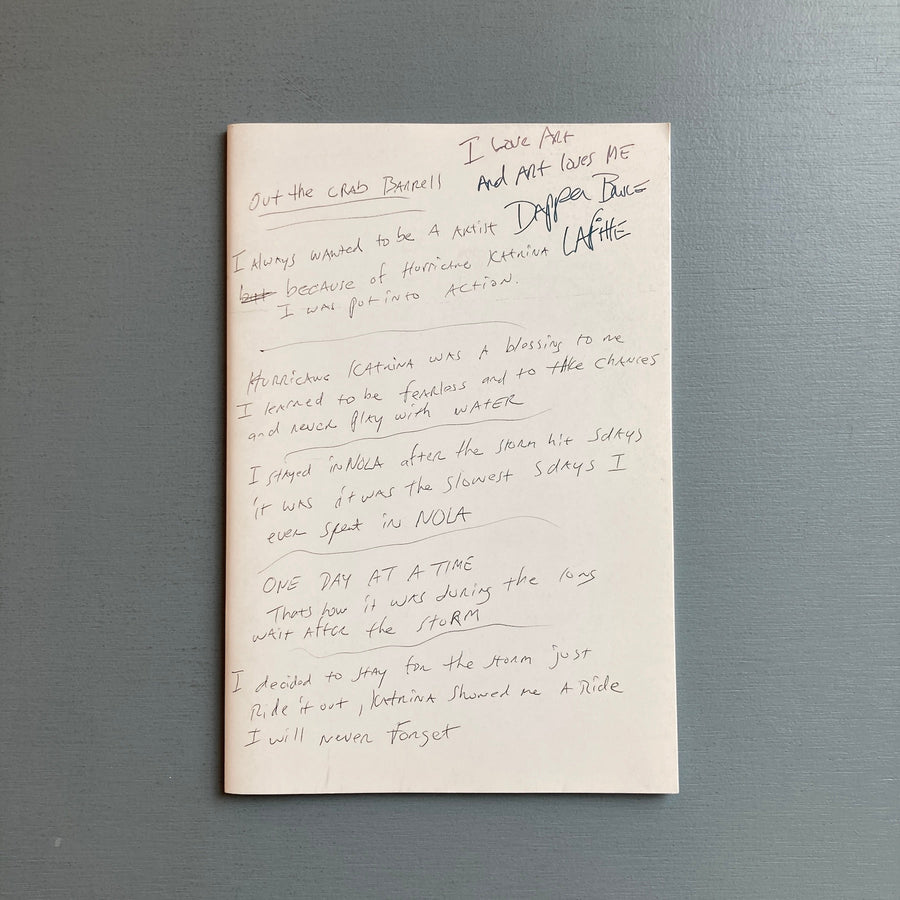 I Love Art
And Art loves ME
Dapper Bruce
Lafitte
Out the Crab Barrell
I Always wanted to be A Artist
but because of Hurricane Katrina
I was put into ACTION.
Hurricane Katrina was A blessing to me
I learned to be fearless and to take chances
and never play with WATER
I stayed in NOLA after the storm hit 5days
it was it was the slowest 5days I
ever spent in NOLA
ONE DAY AT A TIME
Thats how it was during the long
wait After the STORM
I decided to stay for the storm just
Ride it out, Katrina showed me A Ride
I will never Forget